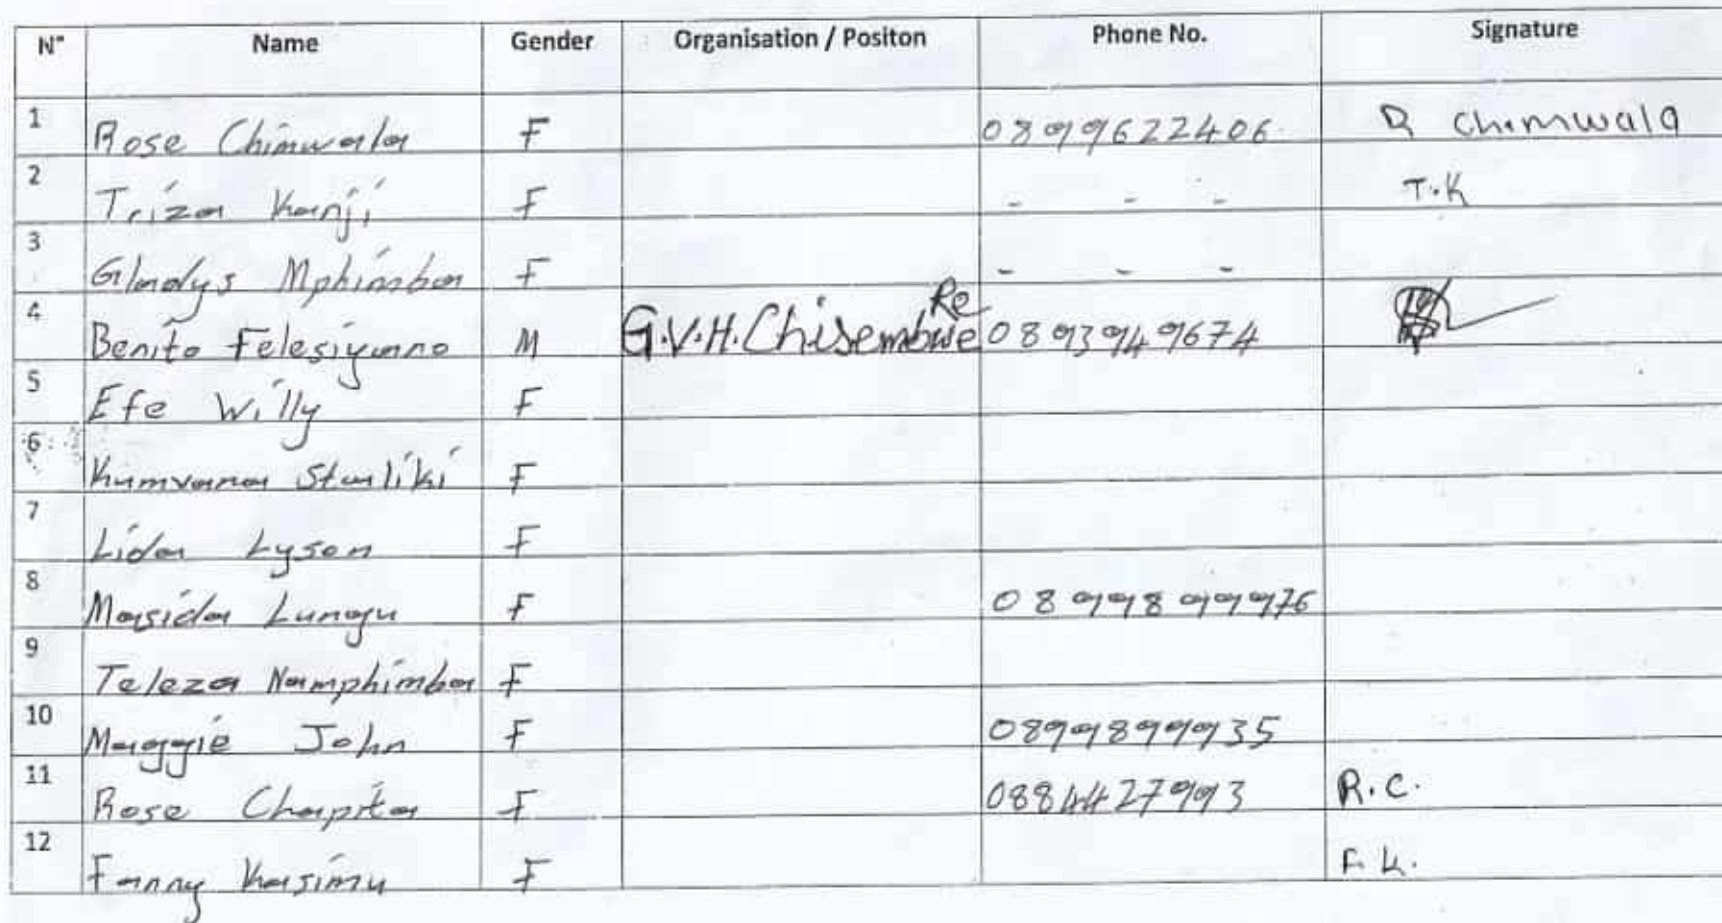 N° Name Gender Organisation / Positon Phone No. Signature
1 Rose Chimwala F 0899622406 R Chimwala
2 Triza Kanji F - - - T.K
3 Gladys Mphimba F - - -
4 Benito Felesiyano M G.V.H. Chisembwe Re 0893949674
5 Efe Willy F
6 Kumvana Staliki F
7 Lida Lyson F
8 Masida Lungu F 0899899976
9 Teleza Namphimba F
10 Maggie John F 0899899935
11 Rose Chapita F 0884427993 R.C.
12 Fanny Kasimu F F.K.